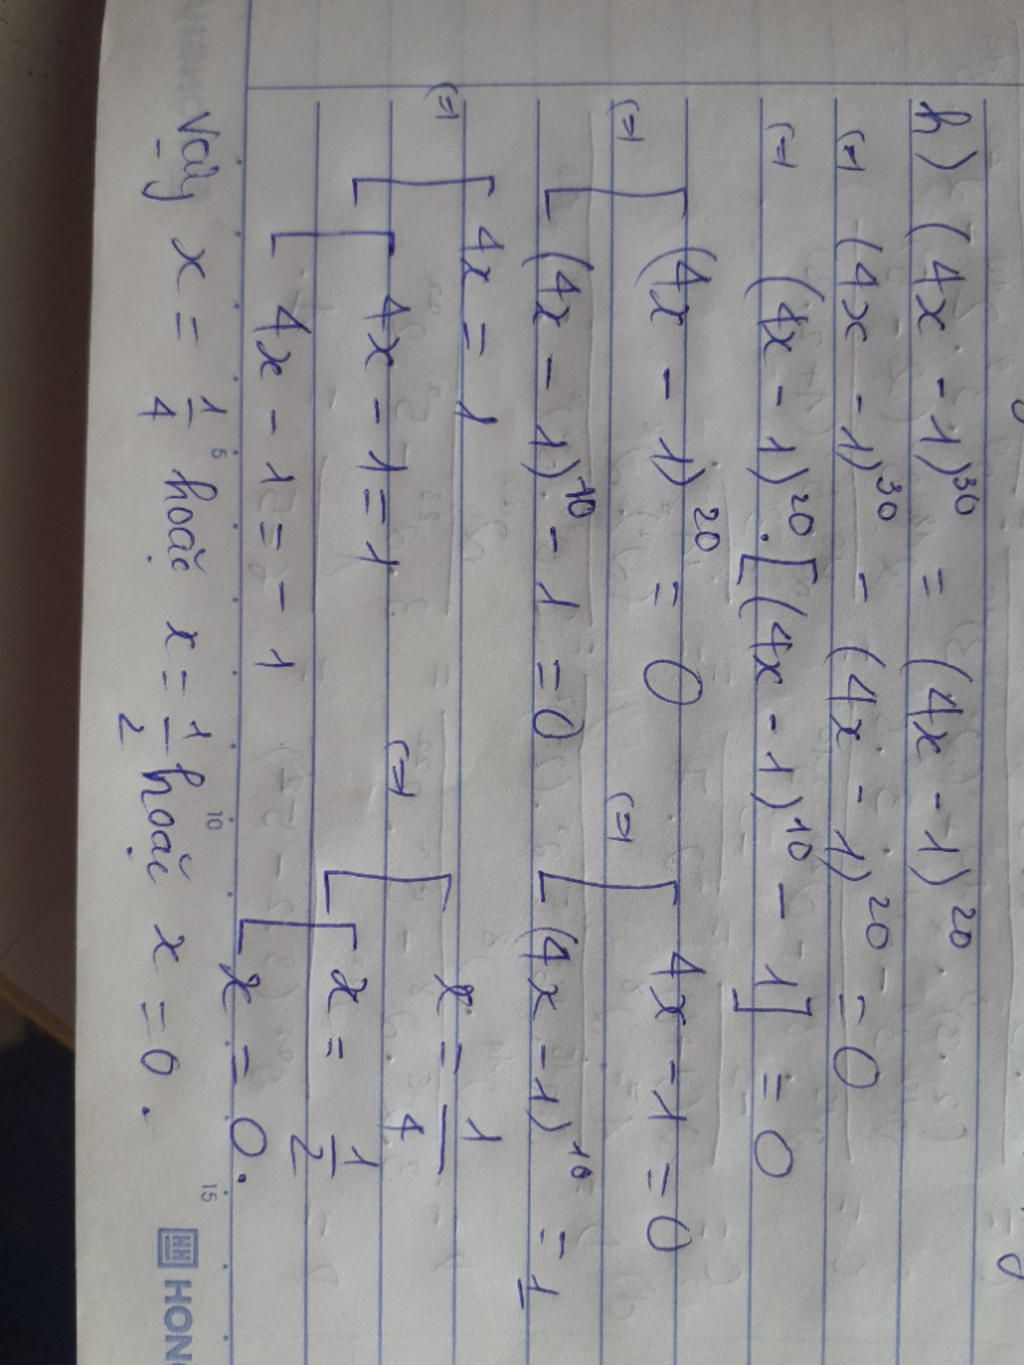 h) (4x - 1)³⁰ = (4x - 1)²⁰
(=) (4x - 1)³⁰ - (4x - 1)²⁰ = 0
(=) (4x - 1)²⁰ . [(4x - 1)¹⁰ - 1] = 0
(=) [ (4x - 1)²⁰ = 0 (=) [ 4x - 1 = 0
(4x - 1)¹⁰ - 1 = 0 (4x - 1)¹⁰ = 1
(=) [ 4x = 1 (=) [ x = 1/4
[ 4x - 1 = 1 [ x = 1/2
4x - 1 = - 1 x = 0.
Vậy x = 1/4 hoặc x = 1/2 hoặc x = 0.
5 10 15
HONG